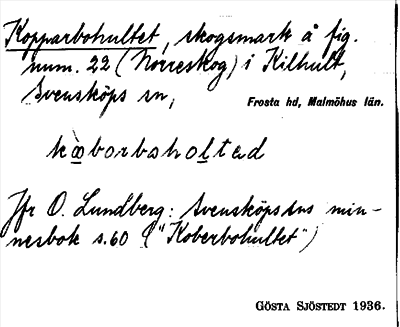 Kopparbohultet, skogsmark å fig.
num. 22 (Norreskog) i Kilhult,
Svensköps sn,
Frosta hd, Malmöhus län.
kåborbsholtəd
Jfr O. Lundberg: Svensköps sns min-
nesbok s. 60 ("Koberbohultet")
GÖSTA SJÖSTEDT 1936.